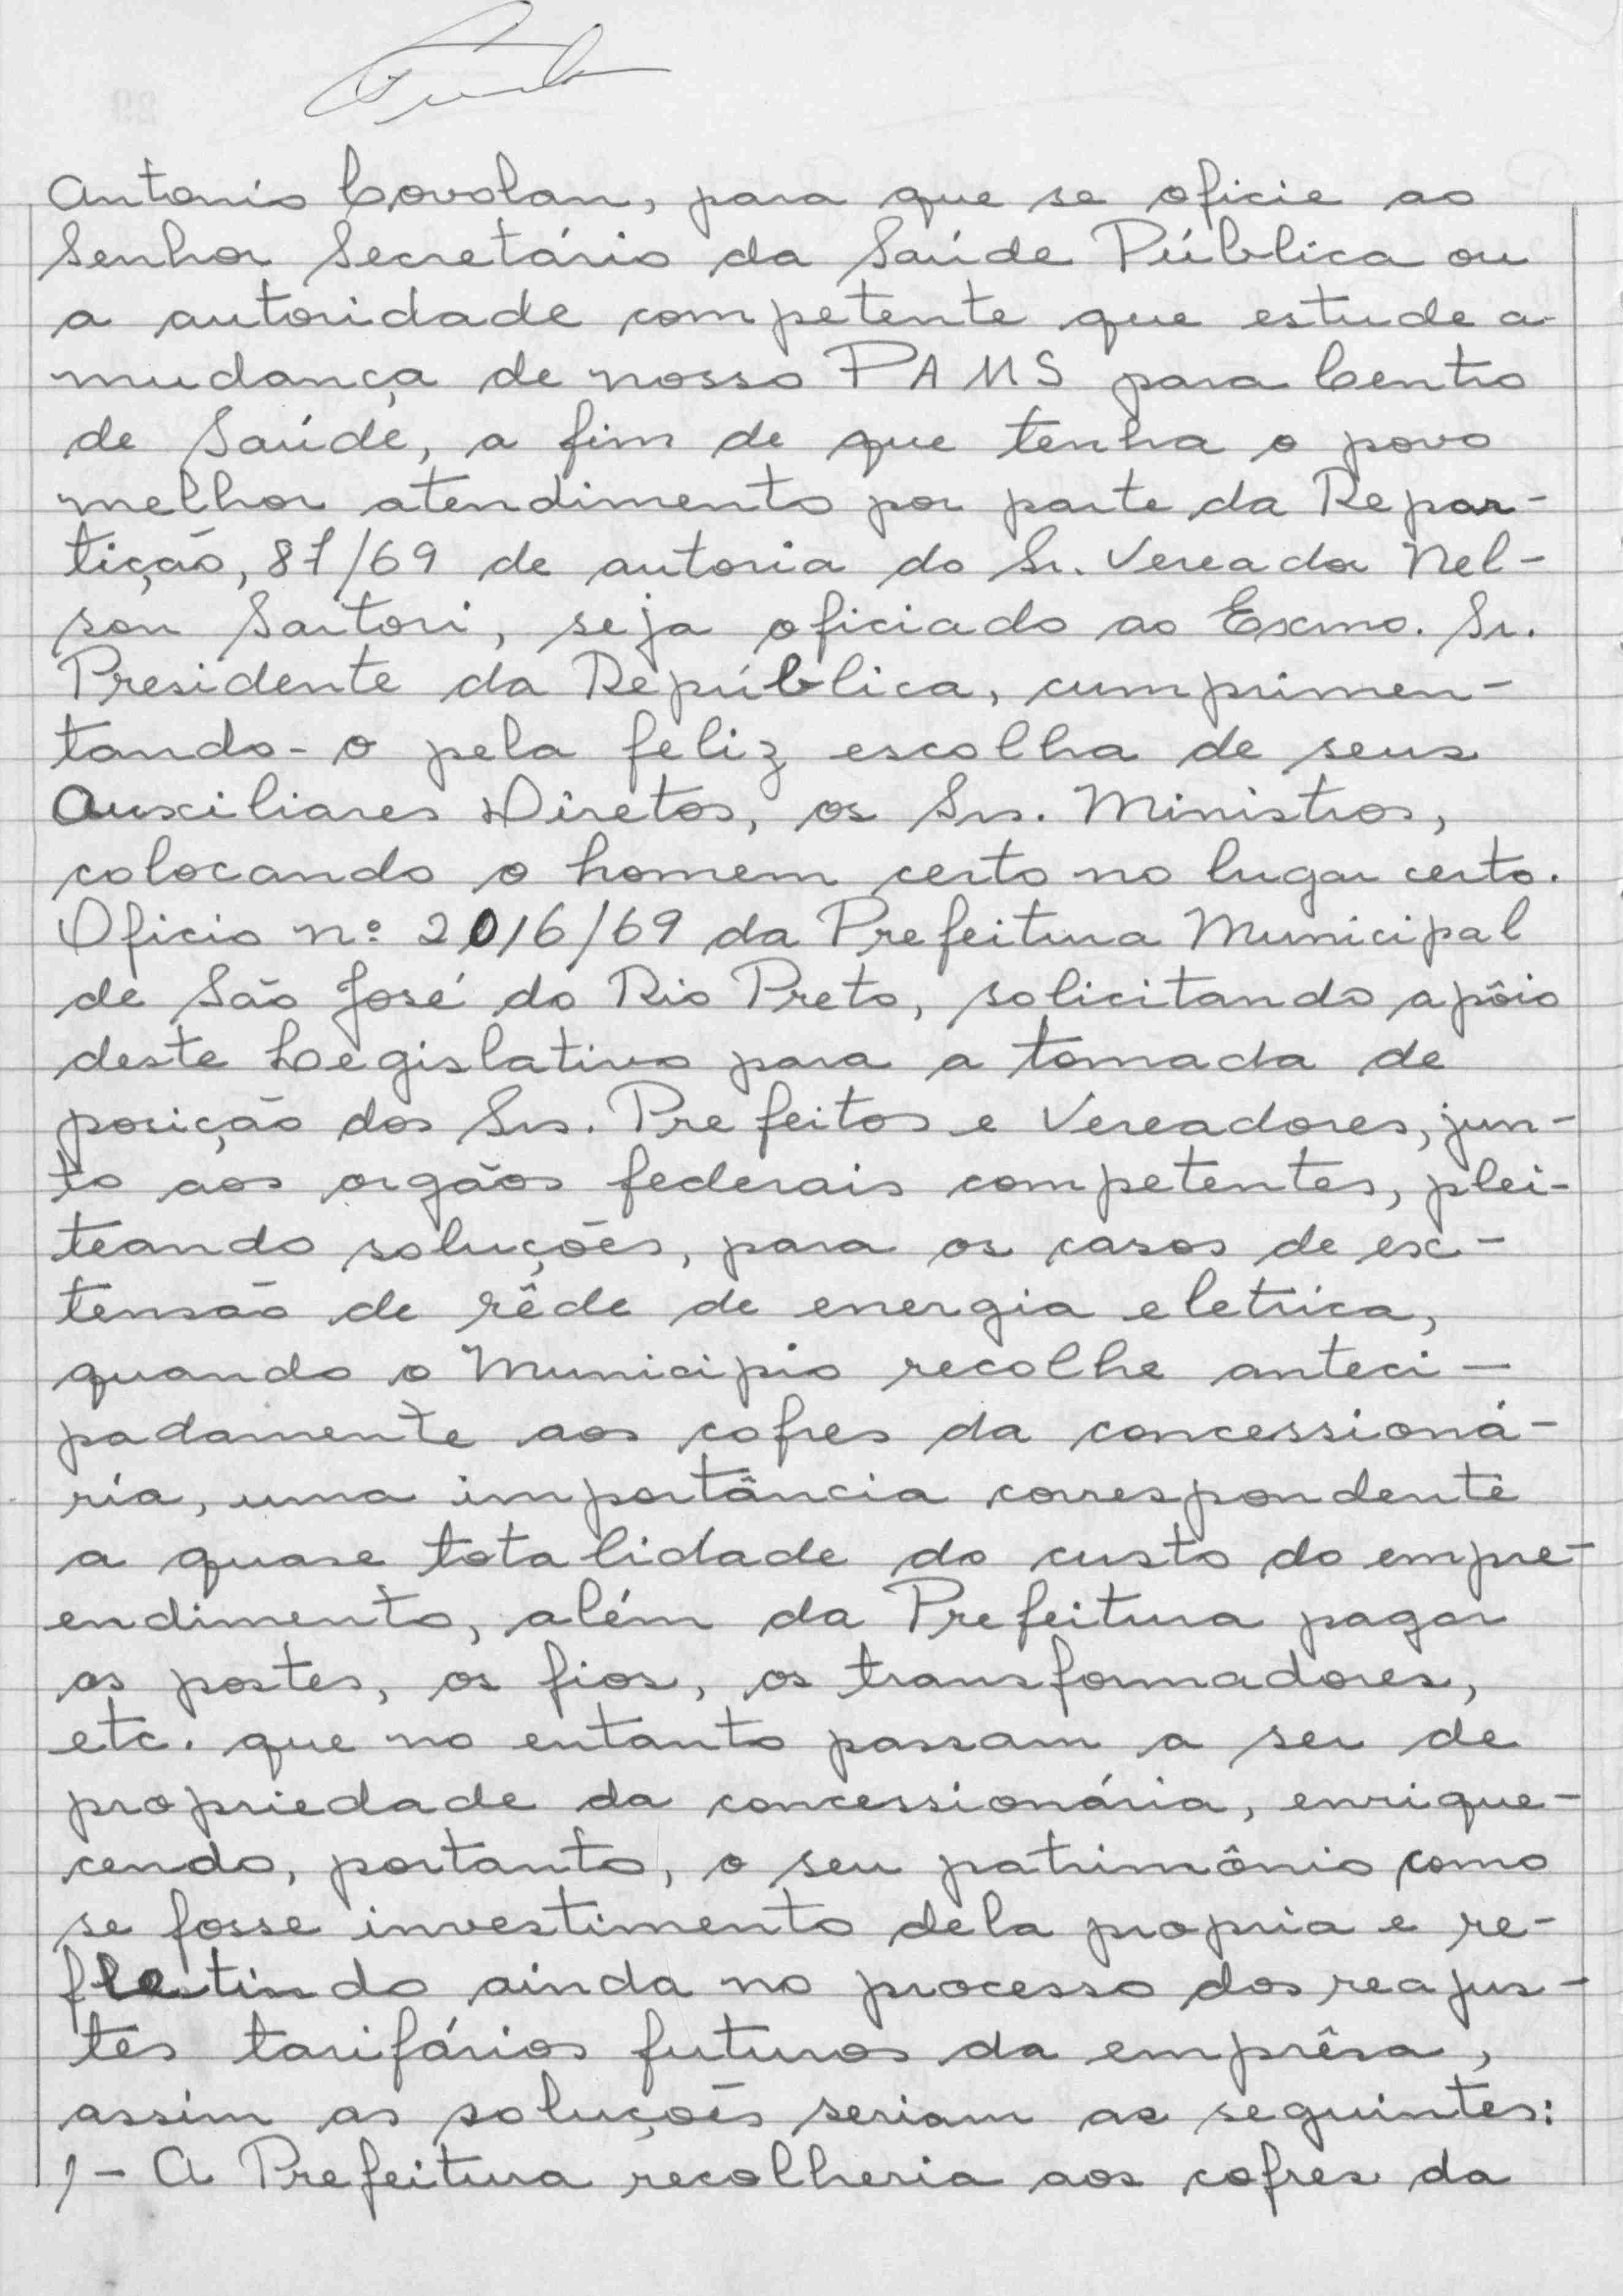 Antonio Covolan, para que se oficie ao
Senhor Secretário da Saúde Pública ou
a autoridade competente que estude a
mudança de nosso PAMS para Centro
de Saúde, a fim de que tenha o povo
melhor atendimento por parte da Repar-
tição, 81/69 de autoria do Sr. Vereador Nel-
son Sartori, seja oficiado ao Exmo. Sr.
Presidente da República, cumprimen-
tando-o pela feliz escolha de seus
Auxiliares Diretos, os Srs. Ministros,
colocando o homem certo no lugar certo.
Oficio nº 2016/69 da Prefeitura Municipal
de São José do Rio Preto, solicitando apôio
deste Legislativo para a tomada de
posição dos Srs. Prefeitos e Vereadores, jun-
to aos orgãos federais competentes, plei-
teando soluções, para os casos de ex-
tensão de rêde de energia eletrica,
quando o Municipio recolhe anteci-
padamente aos cofres da concessioná-
ria, uma importância correspondente
a quase totalidade do custo do empre-
endimento, além da Prefeitura pagar
os postes, os fios, os transformadores,
etc. que no entanto passam a ser de
propriedade da concessionária, enrique-
cendo, portanto, o seu patrimônio como
se fosse investimento dela propria e re-
fletindo ainda no processo dos reajus-
tes tarifários futuros da emprêsa,
assim as soluções seriam as seguintes:
1- A Prefeitura recolheria aos cofres da